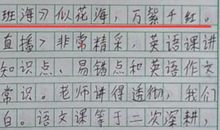 班海？似花海，万紫千红。
直播？非常精采，英语课讲
知识点、易错点和英语作文
常识。老师讲得透彻，我们
白。语文课等于二次深耕，